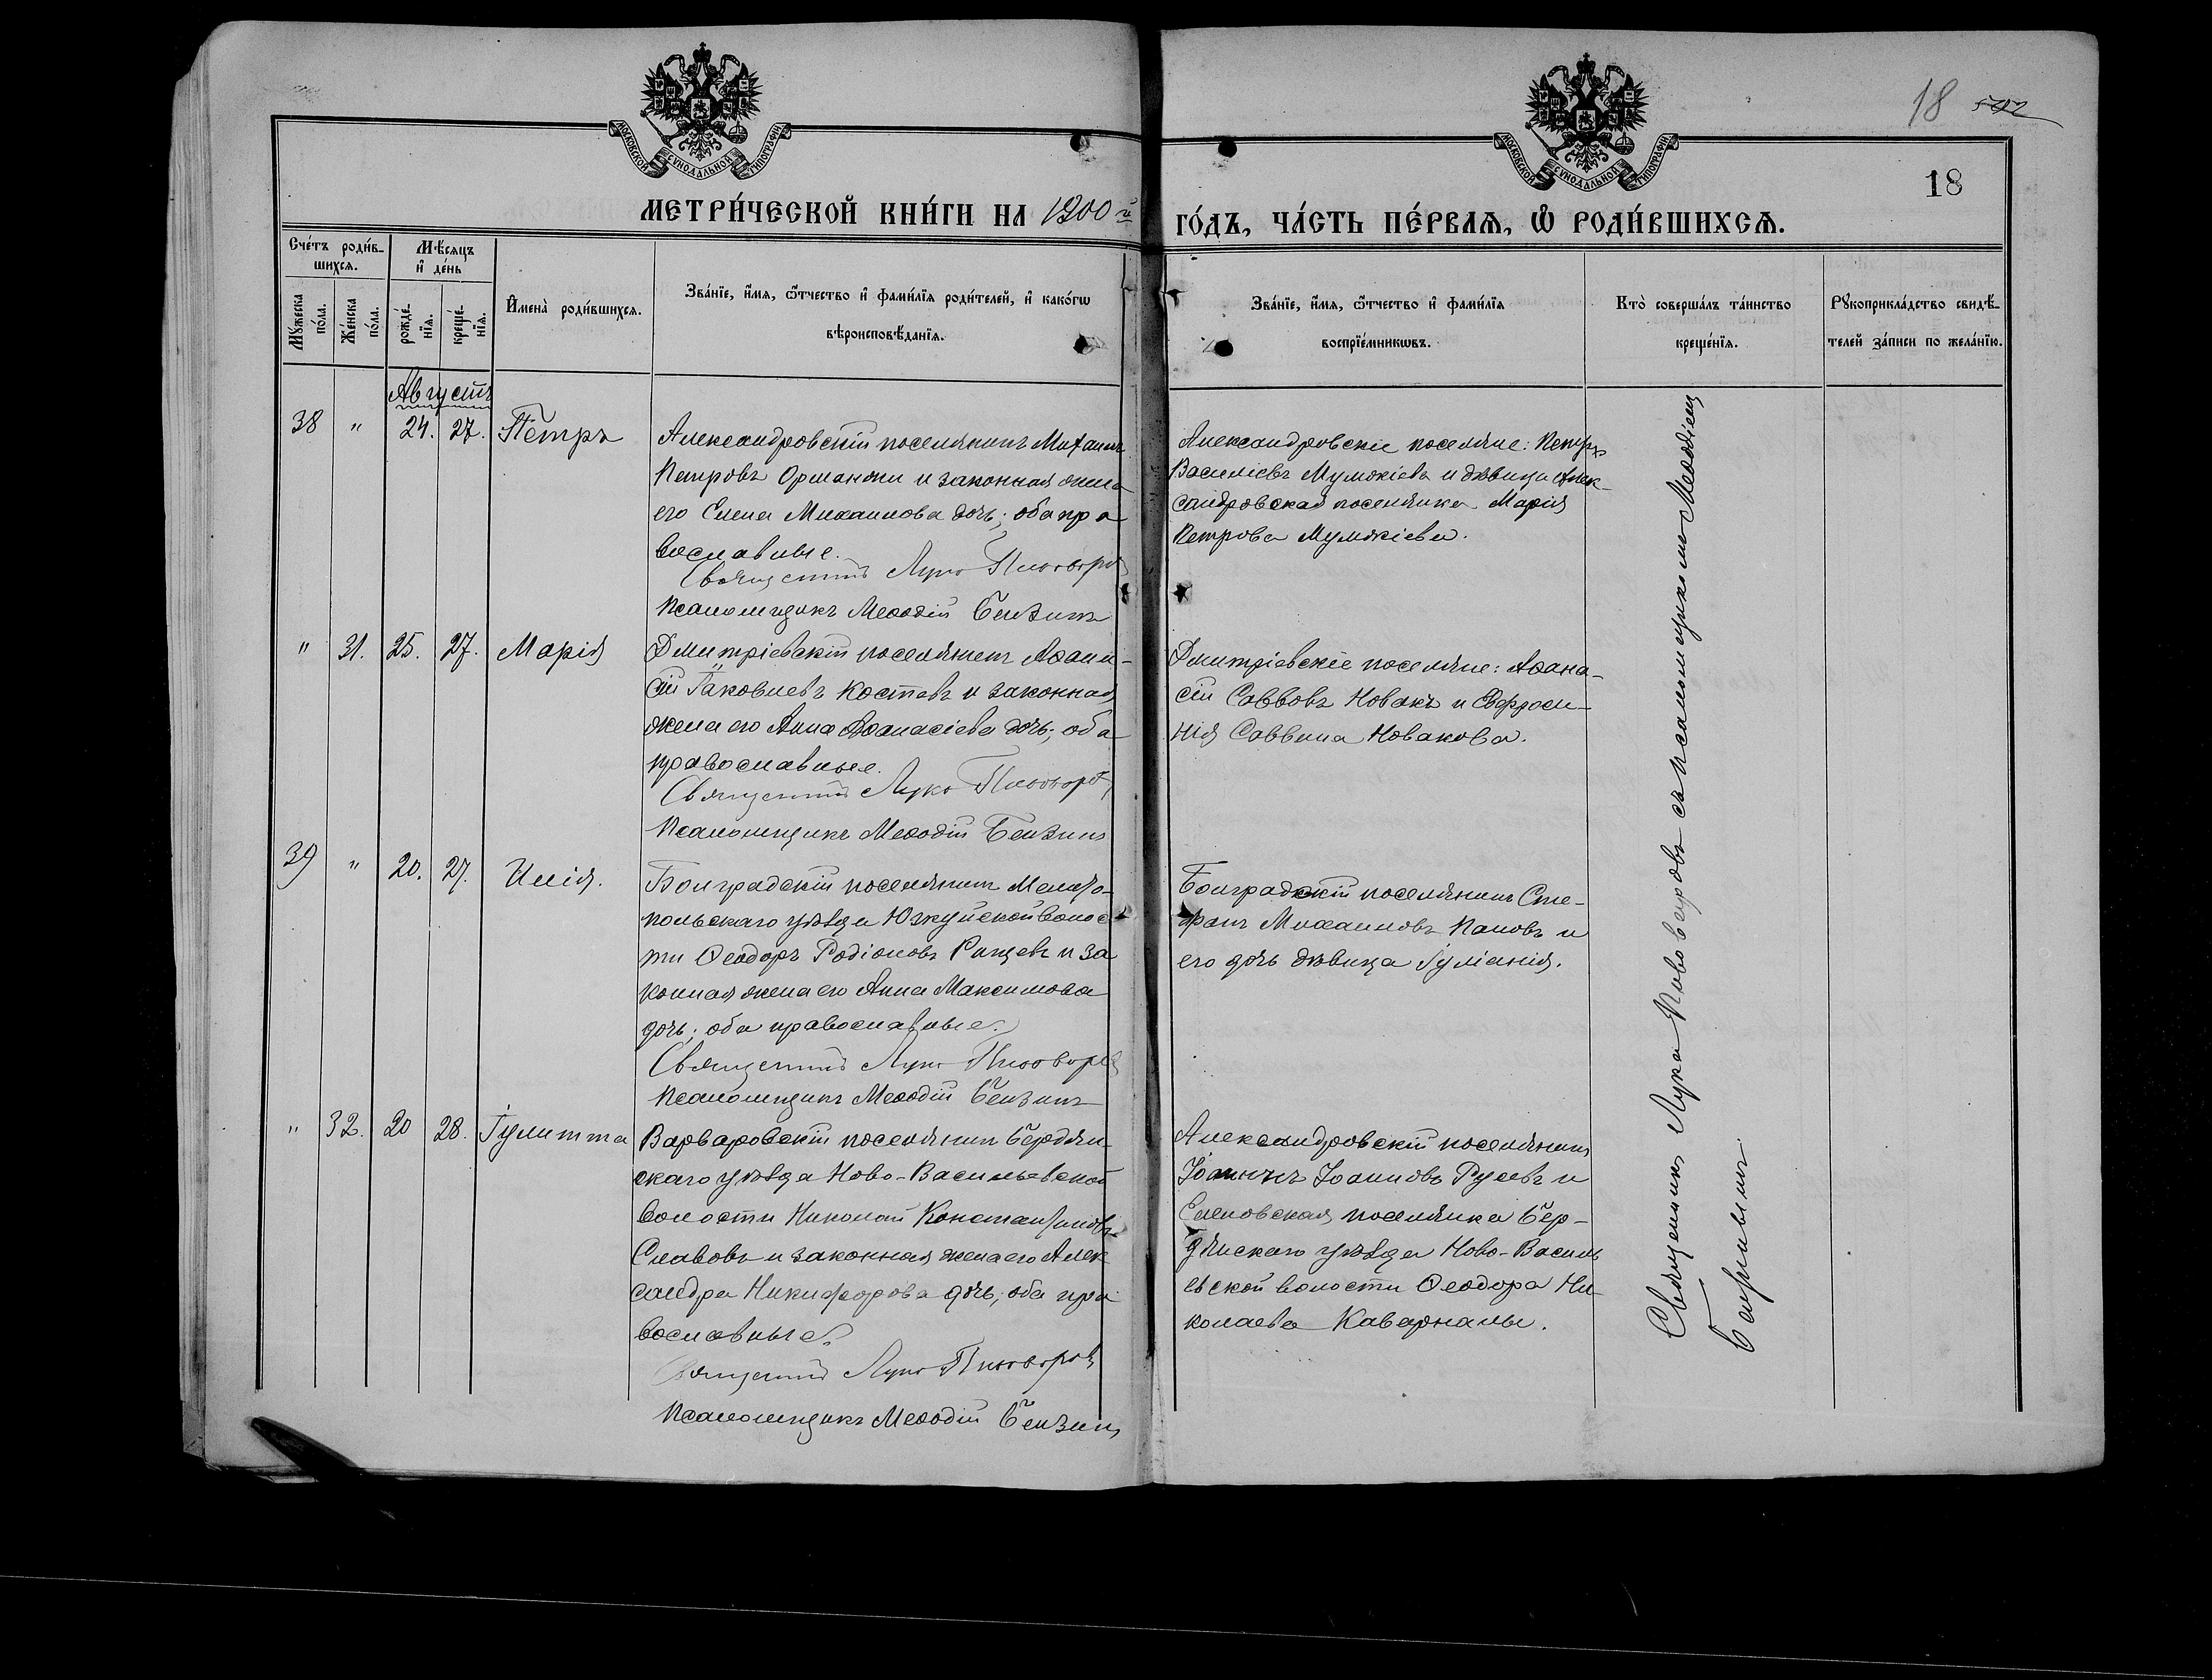 МОСКОВСКОЙ СУНОДАЛЬНОЙ ТИПОГРАФІИ
МОСКОВСКОЙ СУНОДАЛЬНОЙ ТИПОГРАФІИ
18 502
18
МЕТРИ́ЧЕСКОЙ КНИ́ГИ НА 1900й ГО́ДЪ, ЧА́СТЬ ПЕ́РВАѦ, Ѡ РОДИ́ВШИХСѦ.
Сче́тъ роди́в-
шихсѧ.
Мѣ́сяцъ
и҆ де́нь
Мꙋжеска
по́ла.
Же́нска
по́ла.
рожде́-
нїѧ.
креще́-
нїѧ.
И҆мена̀ роди́вшихсѧ.
Зва́нїе, и҆́мѧ, ѻ҆́тчество и҆ фами́лїѧ роди́телей, и҆ како́гѡ
вѣроисповѣ́данїѧ.
Зва́нїе, и҆́мѧ, ѻ҆́тчество и҆ фами́лїѧ
воспрїе́мникѡвъ.
Кто̀ соверша́лъ та́инство
креще́нїѧ.
Рꙋкоприкла́дство свидѣ́-
телей за́писи по жела́нїю.
Августъ
38 " 24. 27. Петръ
Александровскій поселянинъ Михаилъ
Петровъ Орманжи и законная жена
его Елена Михаилова дочь; оба пра
вославные.
Священникъ Лука Пивоваровъ
Псаломщикъ Меѳодій
Александровскіе поселяне: Петръ
Василіевъ Мумжіевъ и дѣвица Алек-
сандровская поселянка Марія
Петрова Мумжіева.
" 31. 25. 27. Марія
Дмитріевскій поселянинъ Аѳана-
сій Іаковлевъ Костевъ и законная
жена его Анна Аѳанасіева дочь; оба
православные.
Священникъ Лука Пивоваровъ
Псаломщикъ Меѳодій
Дмитріевскіе поселяне: Аѳана-
сій Саввовъ Новакъ и Евфроси-
нія Саввина Новакова.
39 " 20. 27. Илія.
Болградскій поселянинъ Мелито-
польскаго уѣзда Юзкуйской волос-
ти Ѳеодоръ Родіоновъ и за
конная жена его Анна Максимова
дочь; оба православные.
Священникъ Лука Пивоваровъ
Псаломщикъ Меѳодій
Болградскій поселянинъ Сте-
фанъ Михаиловъ Пановъ и
его дочь дѣвица Іуліанія.
" 32. 20 28. Іулитта
Варваровскій поселянинъ Бердян-
скаго уѣзда Ново-Васильевской
волости Николай Константиновъ
Славовъ и законная жена его Алек
сандра Никифорова дочь; оба пра
вославные.
Священникъ Лука Пивоваровъ
Псаломщикъ Меѳодій
Александровскій поселянинъ
Іоаннъ Іоанновъ Русевъ и
Еленовская поселянка Бер-
дянскаго уѣзда Ново-Василь
евской волости Ѳеодора Ни-
колаева Каварналы.
Священникъ Лука Пивоваровъ съ псаломщикомъ Меѳодіемъ